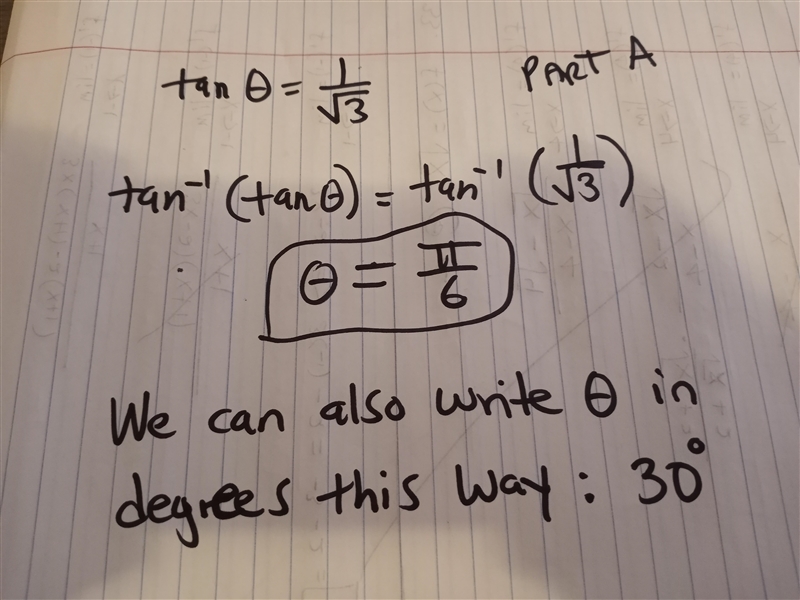 PART A
tan θ = 1/√3
tan⁻¹ (tan θ) = tan⁻¹ (1/√3)
θ = π/6
We can also write θ in
degrees this way: 30°